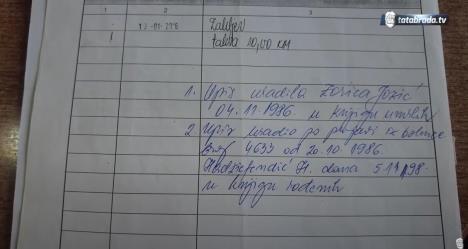 tatabrada.tv
1 2 3
1 12-01-2018 Zahtjev
taksa 10,00 KM
1. Upis uradila Zorica Jozić
04.11.1986. u knjigu umrlih
2. Upis uradio po prijavi iz bolnice
broj 4633 od 20.10.1986.
H. dana 5.11.198
u knjigu rođenih